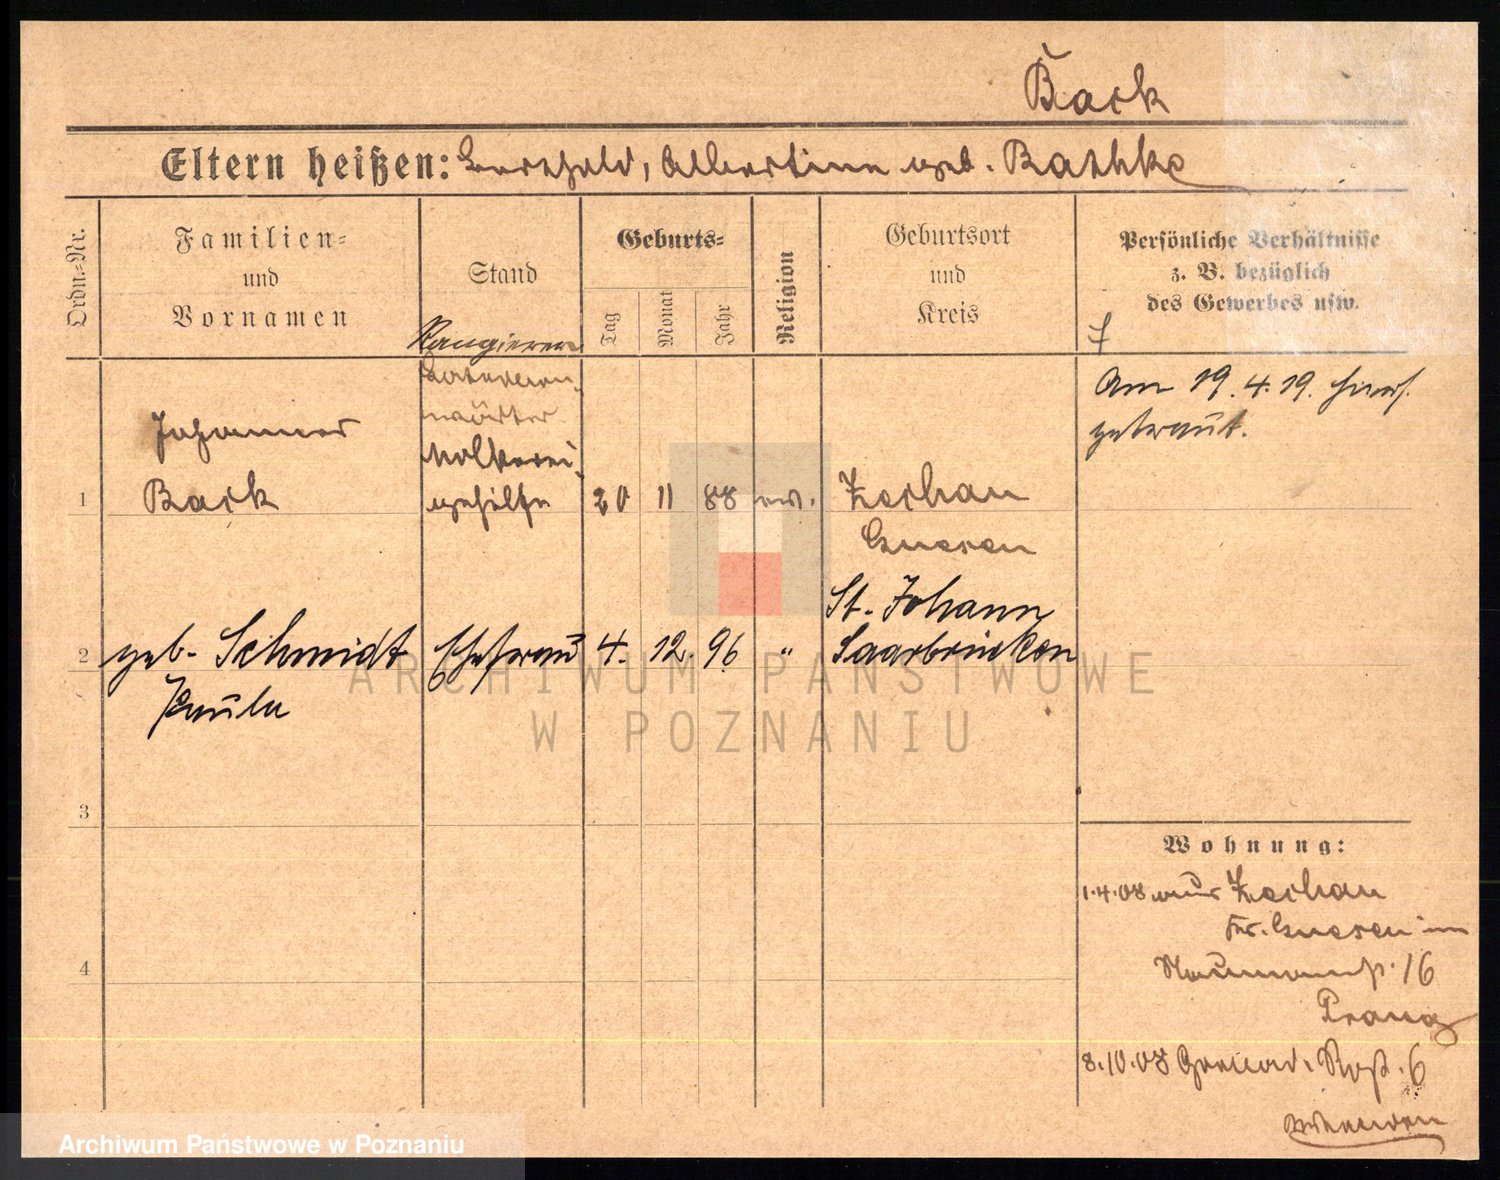 Back
Eltern heißen: Berthold, Albertine geb. Rathke
Ordn.-Nr.
Familien-
und
Vornamen
Stand
Geburts-
Tag
Monat
Jahr
Religion
Geburtsort
und
Kreis
Persönliche Verhältnisse
z. B. bezüglich
des Gewerbes usw.
Rangierer
wärter
Am 19.4.19. hiers.
getraut.
Johannes
Molkerei-
1 Back gehilfe 20 11 88 ev. Zechau
Gnesen
St. Johann
2 geb. Schmidt Ehefrau 4. 12. 96 " Saarbrücken
Paula
3
4
Wohnung:
1.4.08 aus Zechau
Kr. Gnesen in
Naumannstr. 16
8.10.08 Grenad. 6
Archiwum Państwowe
w Poznaniu
Archiwum Państwowe w Poznaniu